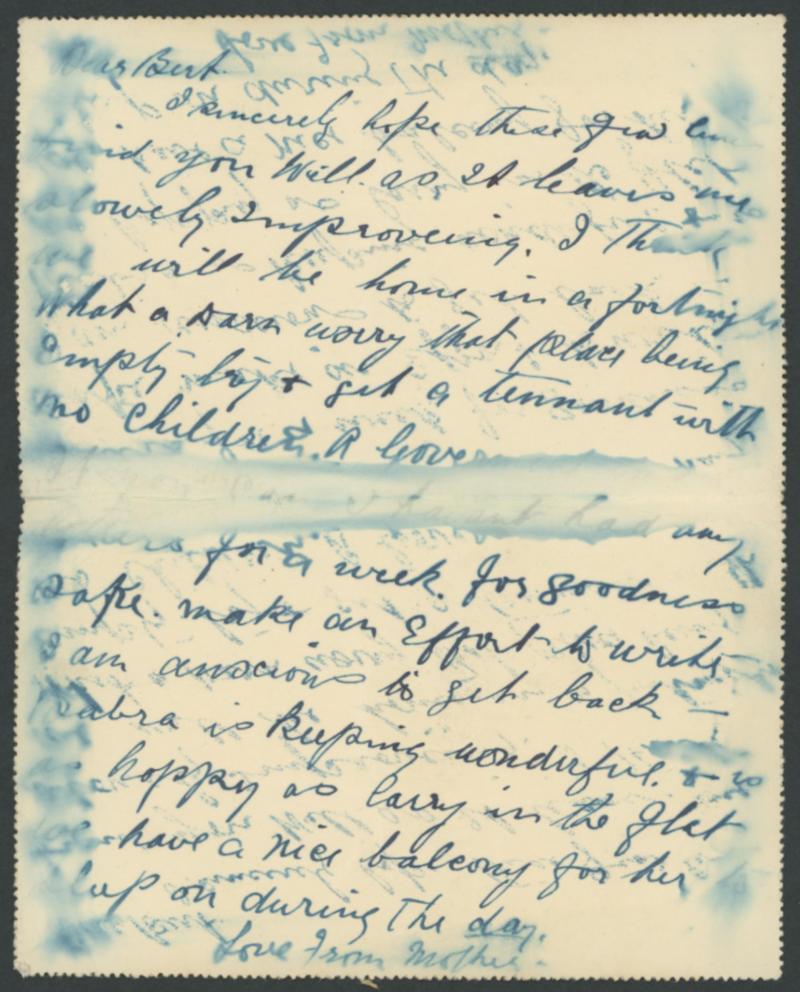 Dear Bert.
I sincerely hope these few
you Will. as It leaves me
Improveing. I Think
will be home in a fortnight
What a darn worry that place being
Empty try + get a tennant with
no Children. A
I havent had any
letters for a week. for goodness
sake. make an Effort to write
am anscious to get back —
is keeping wonderful. + is
happy as larry in the flat
have a nice balcony for her
on during the day.
Love From Mother.